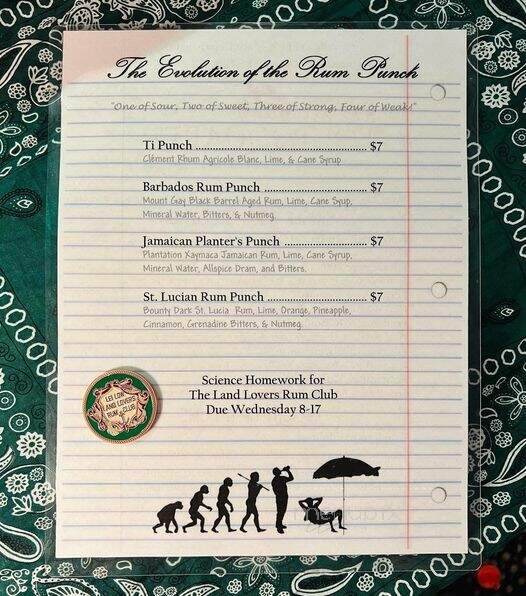 The Evolution of the Rum Punch
"One of Sour, Two of Sweet, Three of Strong, Four of Weak!"
Ti Punch ........................................................ $7
Clément Rhum Agricole Blanc, Lime, & Cane Syrup
Barbados Rum Punch .................................. $7
Mount Gay Black Barrel Aged Rum, Lime, Cane Syup,
Mineral Water, Bitters, & Nutmeg.
Jamaican Planter's Punch ........................... $7
Plantation Xaymaca Jamaican Rum, Lime, Cane Syrup,
Mineral Water, Allspice Dram, and Bitters.
St. Lucian Rum Punch .................................. $7
Bounty Dark St. Lucia Rum, Lime, Orange, Pineapple,
Cinnamon, Grenadine Bitters, & Nutmeg.
Science Homework for
The Land Lovers Rum Club
Due Wednesday 8-17
LEI LOW
LAND LOVERS
RUM CLUB